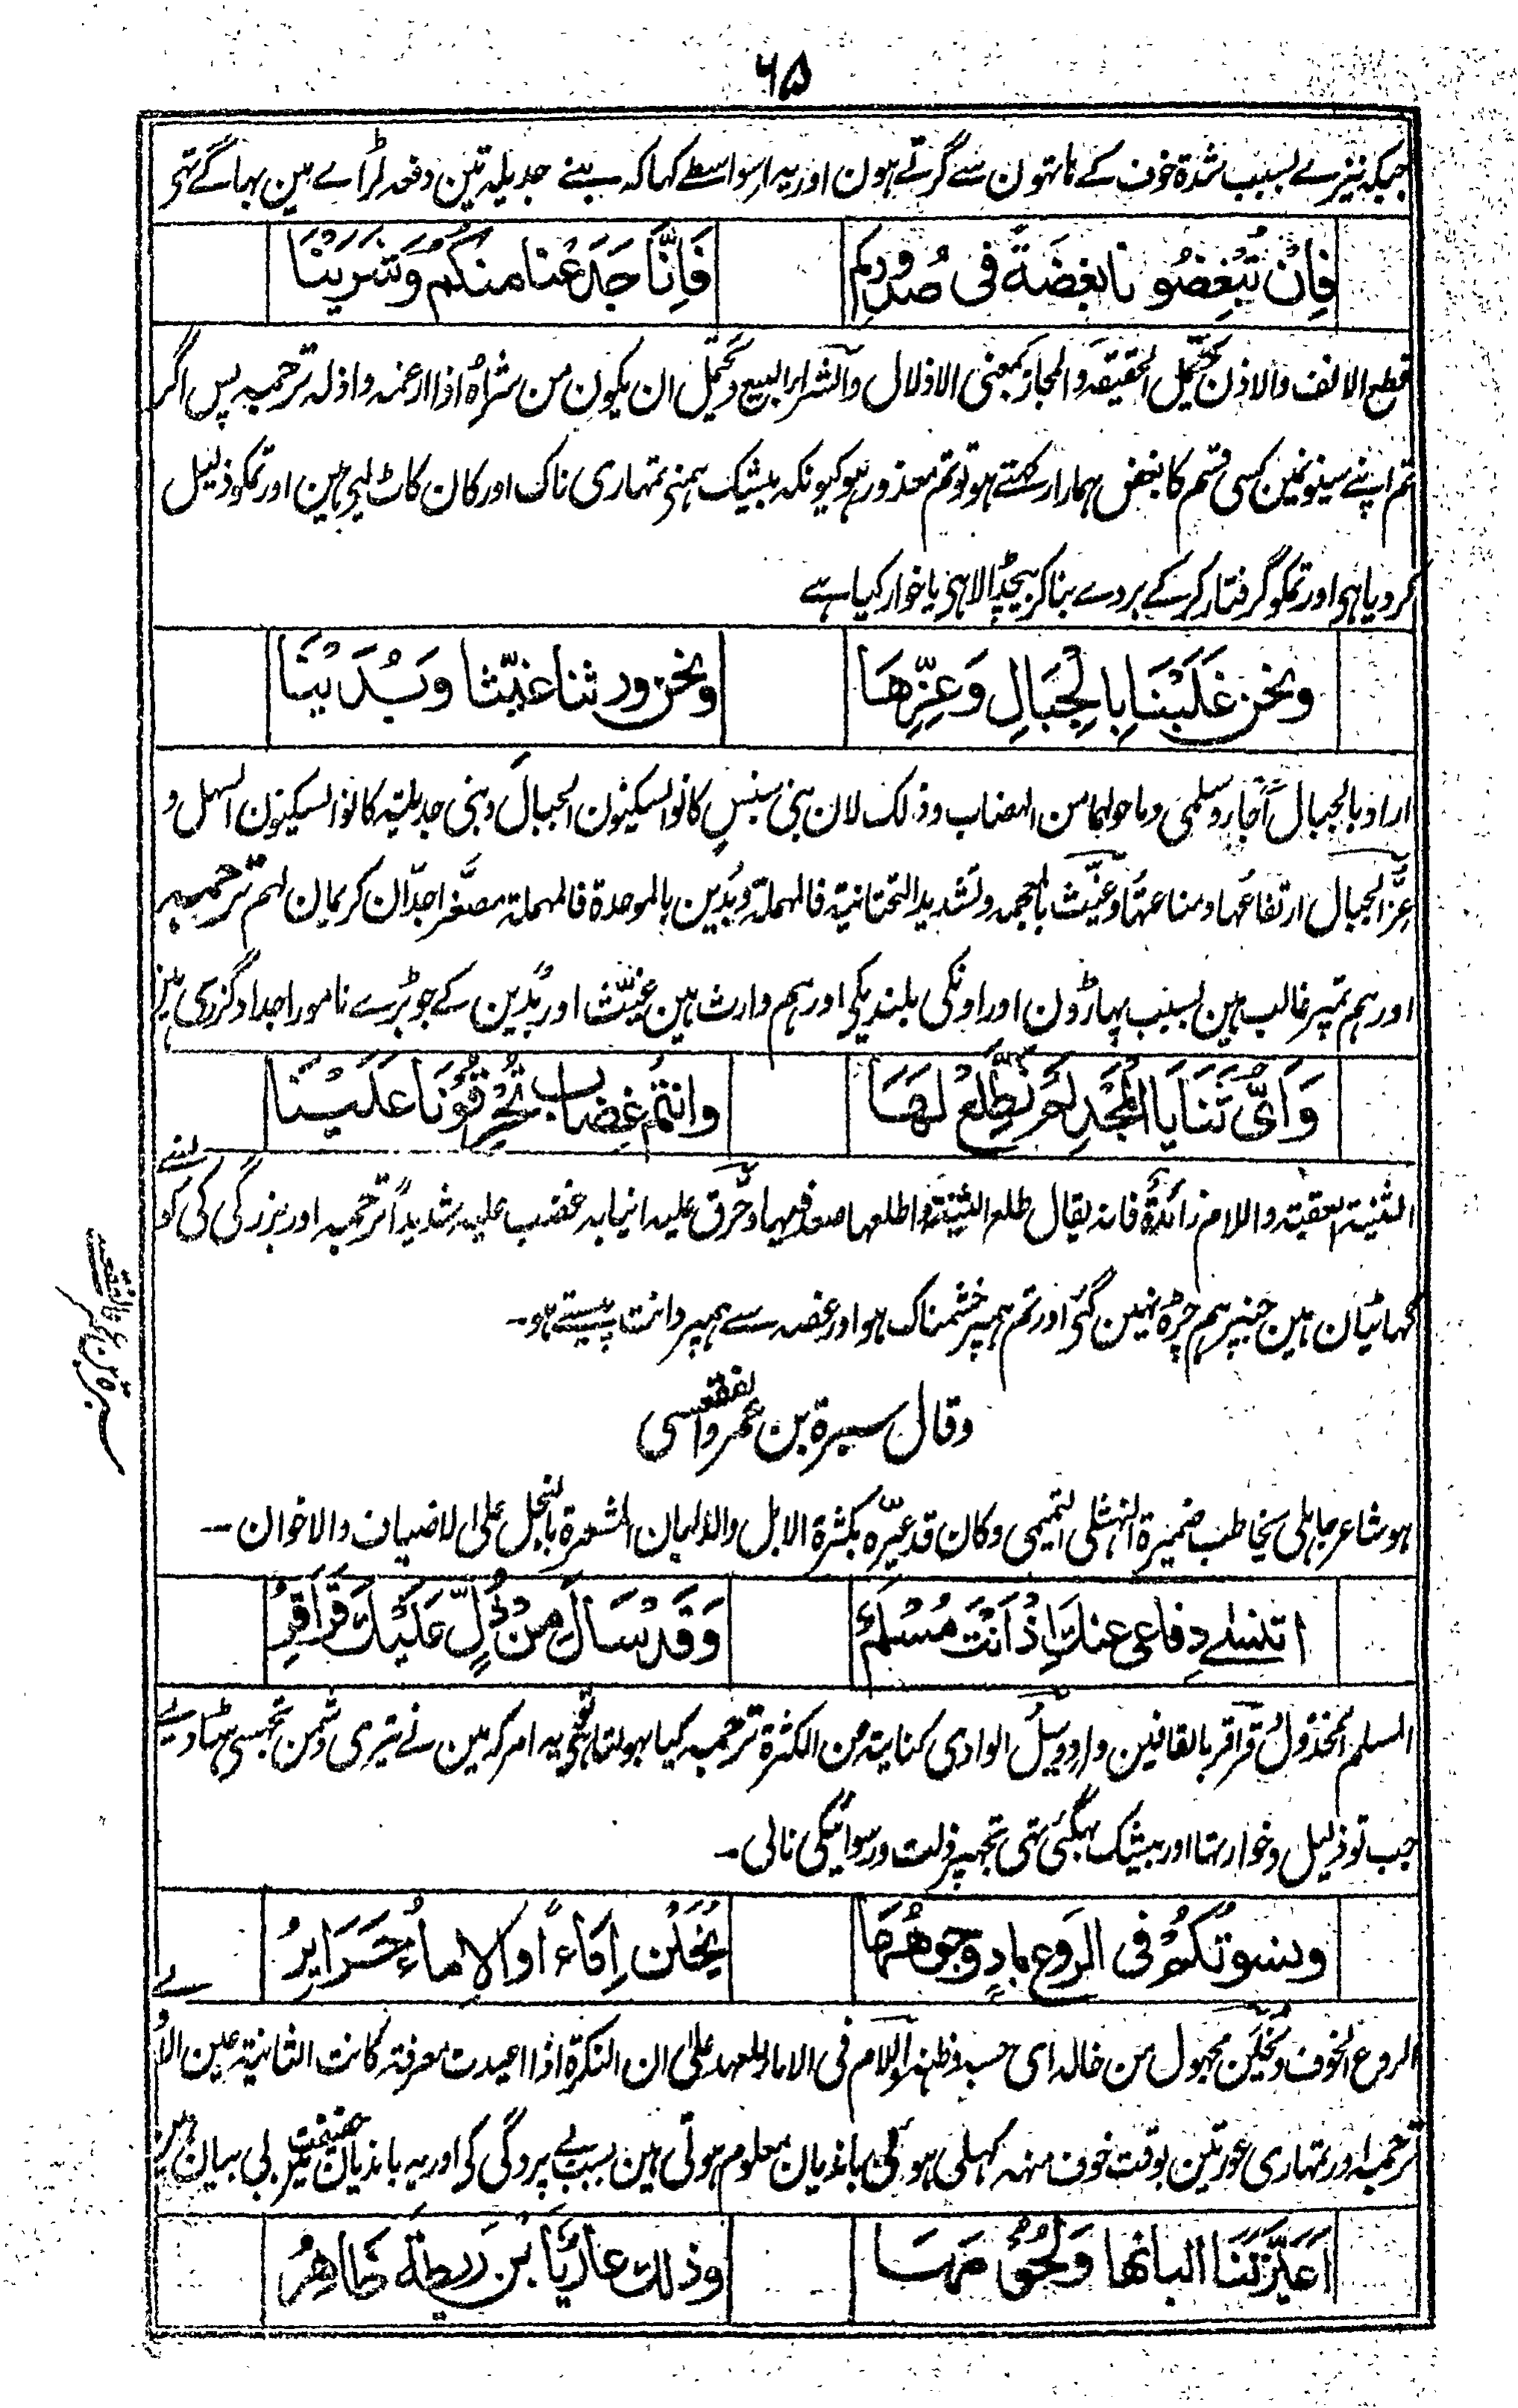 ۶۵
جبکہ نیزے بسبب شدۃ خوف کے ہاتہون سے گرتے ہون اور یہ اسواسطے کہا کہ بنے جدیلہ تین دفعہ لڑاے مین بہاگے تہے
فَاِنْ تُبْغِضُونا بِغْضَةً فى صُدُورِكم
فَاِنَّا جَدَعْنا منكم وَشَرَيْنَا
قطع الانف والاذن يحتمل الحقيقة والمجاز بمعنى الاذلال والشراء البيع ويحتمل ان يكون من شراه اذا ارغمه واذله ترجمہ پس اگر
تم اپنے سینونمین کسی قسم کا بغض ہمارا رکہتے ہو تو تم معذور ہو کیونکہ بیشک ہمنے تمہاری ناک اور کان کاٹ لیے ہین اور تمکو ذلیل
کر دیا ہی اور تمکو گرفتار کرکے بردے بنا کر بیچڈالا ہی یا خوار کیا ہے
ونحن غَلَبْنَا بِالجِبَالِ وَعِزِّهَا
ونحن ورثنا غيّثا وبُدَيْنَا
اراد بالجبال اَجَأ وسلمى وما حولهما من الهضاب وذلك لان بنى سنبس كانوا يسكنون الجبال وبنى جديلة كانوا يسكنون السهل و
عزّ الجبال ارتفاعها ومناعتها وغيّث بالمعجمہ وتشديد التحتانية فالمهملة وبُدَين بالموحدة فالمهملة مصغّر اجدّان كريمان لهم ترجمہ
اور ہم تمپر غالب ہین بسبب پہاڑون اور اونکی بلندیکی اور ہم وارث ہین غیّث اور بُدَین کے جو بڑے نامور اجداد گزری ہین
وَاَىُّ ثَنَايَا المَجْدِ لَمْ نَطَّلِعْ لَهَا
وانتم غِضاب تُحَرِّقُونَ عَلَيْنَا
الثنية العقبة واللام زائدة فانه يقال طلع الثنية واطلعها صعد فيها وحرّق عليه انيابه غضب عليه شديداً ترجمہ اور بزرگی کی کو لنے
گہاٹیان ہین جنپر ہم چڑہ نہین گئے اور تم ہمپر خشمناک ہو اور غصہ سے ہمپر دانت پیستے ہو ۔
وقال سبرة بن عمرو الفقعسى
ہو شاعر جاہلى يخاطب ضميرة النهشلى التميمى وكان قد عيّره بكثرة الابل والالبان المشعرة بالبخل على الاضياف والاخوان ۔
اتنسٰے دِفاعى عنك اِذْ اَنْتَ مُسْلَمٌ
وَقَدْ سَالَ مِنْ ذُلٍّ عَلَيْكَ قَرَاقِرُ
المسلم المخذول وقراقر بالقافين واد وسيل الوادى كناية من الكثرة ترجمہ کیا بہولتا ہے تو یہ امر کہ مین نے تیری دشمن تجہسے ہٹا دیے
جب تو ذلیل و خوار تہا اور بیشک بہگئی تہی تجہپر ذلت و رسوائیکی نالی ۔
ونسوتكم فى الرَوعِ بادٍ وجوهُهَا
يُخَلْنَ اِمَاءً والاِماءُ حَرَايِرُ
الروع الخوف ويخلن مجہول من خالہ اى حسبہ وظنہ واللام فى الاماء للعهد على ان النكرة اذا اعيدت معرفة كانت الثانية عين الاولے
ترجمہ اور تمہاری عورتین بوقت خوف منہہ کہلی ہوئی باندیان معلوم ہوتی ہین بسبب بے پردگی کی اور یہ باندیان حقیقت مین بی بیان ہین
اَعَيَّرْتَنَا البانها ولُحُومَهَا
وذلك عارٌ يَا بن ريطة ظاهِرُ